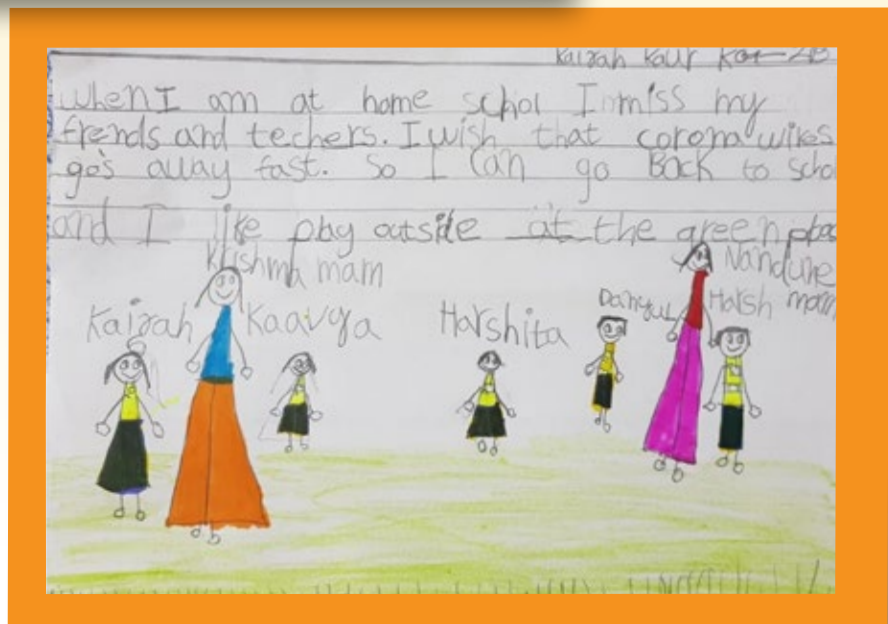 Kairah Kaur
when I am at home schol I miss my
frends and techers. I wish that corona wires
go's away fast. So I can go BacK to scho
and I like play outsite at the green
Krishma mam
Nandune
mam
Kairah
Kaavya
Harshita
Danyul
Harsh